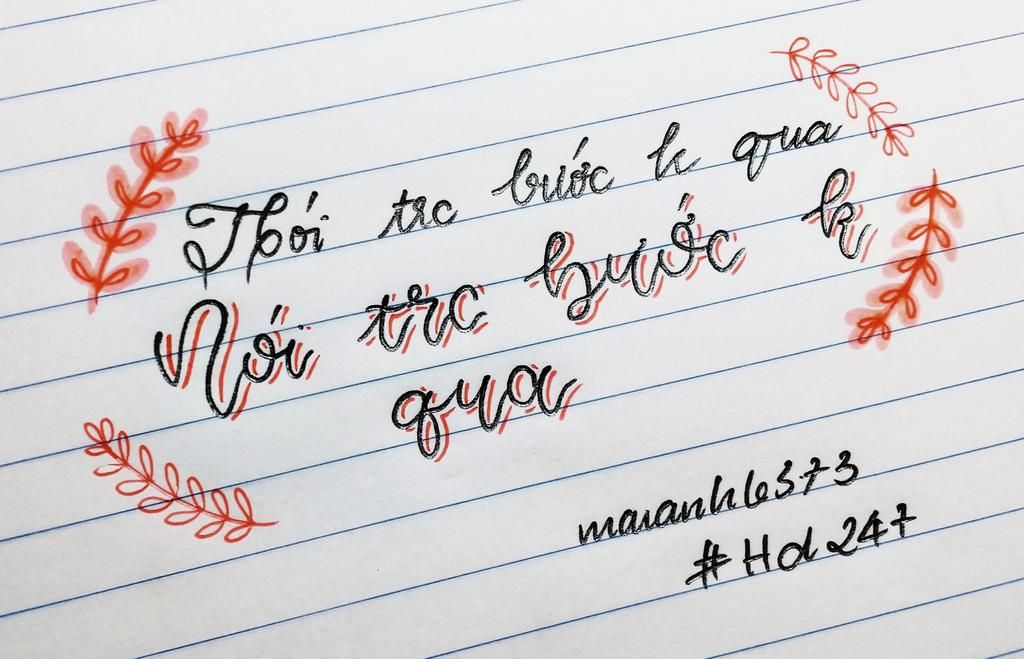 Thói trc bước k qua
Nói trc bước k
qua
maianh6373
#Hd247